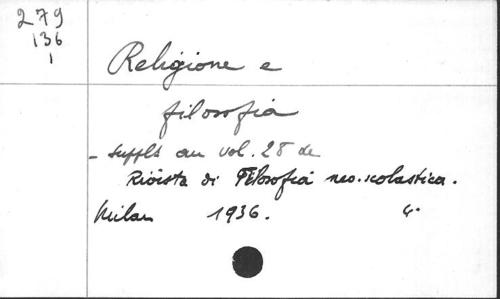 279
136
1
Religione e
filosofia
- supplt au vol. 28 de
Rivista di Filosofia neo-scolastica.
Milan 1936.